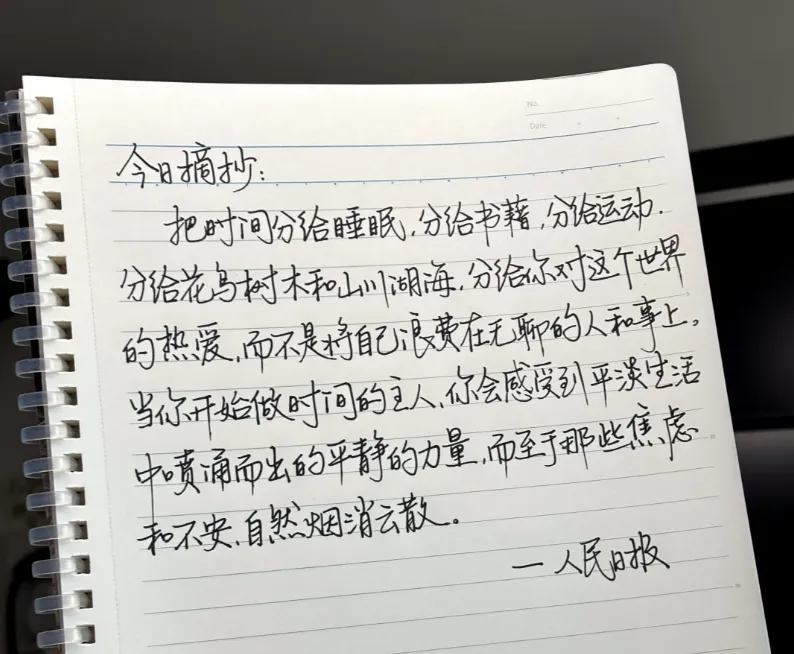 No.
Date
今日摘抄：
把时间分给睡眠,分给书籍,分给运动.
分给花鸟树木和山川湖海,分给你对这个世界
的热爱,而不是将自己浪费在无聊的人和事上。
当你开始做时间的主人,你会感受到平淡生活
中喷涌而出的平静的力量,而至于那些焦虑
和不安,自然烟消云散。
—人民日报